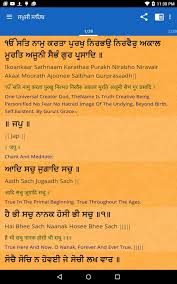 11:00 PM
ਜਪੁਜੀ ਸਾਹਿਬ
1/39
ੴ ਸਤਿ ਨਾਮੁ ਕਰਤਾ ਪੁਰਖੁ ਨਿਰਭਉ ਨਿਰਵੈਰੁ ਅਕਾਲ
ਮੂਰਤਿ ਅਜੂਨੀ ਸੈਭੰ ਗੁਰ ਪ੍ਰਸਾਦਿ ॥
Ikoankaar Sathnaam Karathaa Purakh Nirabho Niravair
Akaal Moorath Ajoonee Saibhan Gurprasaadh||
One Universal Creator God, TheName Is Truth Creative Being
Personified No Fear No Hatred Image Of The Undying, Beyond Birth,
Self-Existent. By Guru's Grace~
॥ ਜਪੁ ॥
|| Jap ||
॥ जपु ॥
Chant And Meditate:
ਆਦਿ ਸਚੁ ਜੁਗਾਦਿ ਸਚੁ ॥
Aadh Sach Jugaadh Sach ||
आदि सचु जुगादि सचु ॥
True In The Primal Beginning. True Throughout The Ages.
ਹੈ ਭੀ ਸਚੁ ਨਾਨਕ ਹੋਸੀ ਭੀ ਸਚੁ ॥੧॥
Hai Bhee Sach Naanak Hosee Bhee Sach ||1||
True Here And Now. O Nanak, Forever And Ever True. ||1||
ਸੋਚੈ ਸੋਚਿ ਨ ਹੋਵਈ ਜੇ ਸੋਚੀ ਲਖ ਵਾਰ ॥